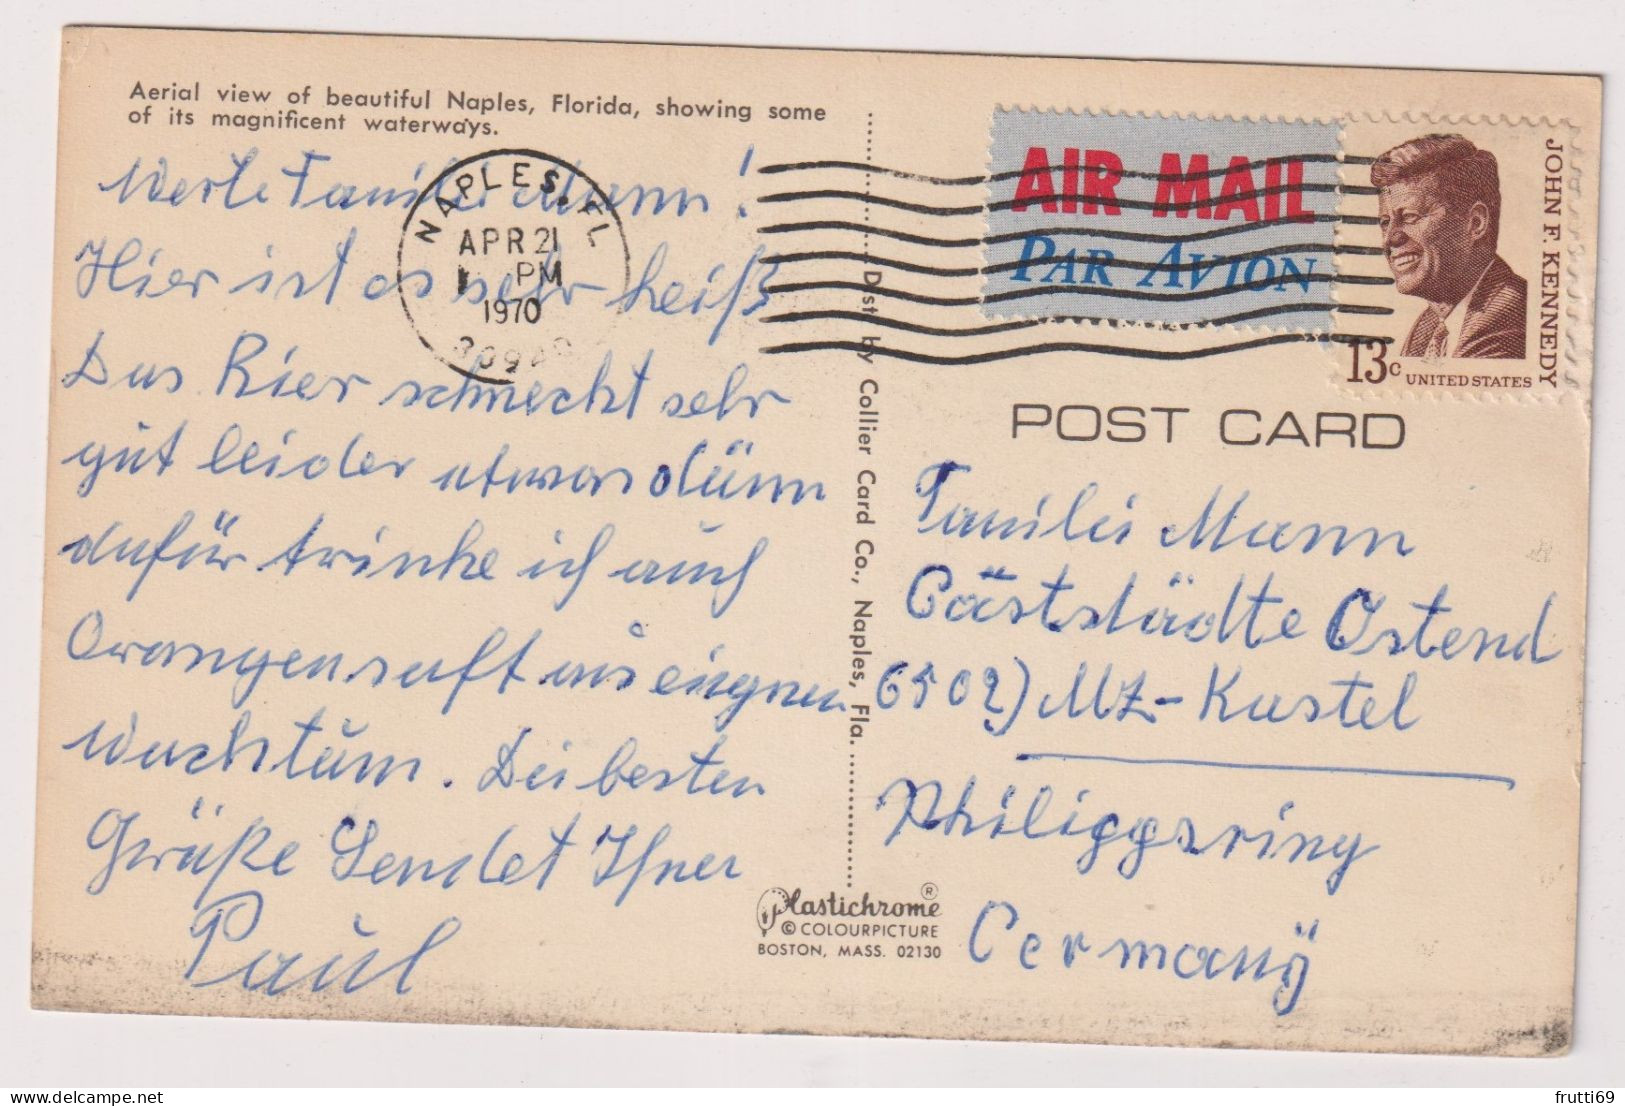 Aerial view of beautiful Naples, Florida, showing some
of its magnificent waterways.
Werte Familie Mann!
Hier ist es sehr heiß
Das Bier schmeckt sehr
gut leider etwas dünn
dafür trinke ich auch
Orangensaft aus eignen
Wachstum. Die besten
Grüße Sendet Ihnen
Paul
NAPLES, FL
APR 21
PM
1970
Dist. by Collier Card Co., Naples, Fla.
AIR MAIL
PAR AVION
JOHN F. KENNEDY
13c UNITED STATES
POST CARD
Familie Mann
Gaststädte Ostend
6502) MZ-Kastel
Philippsring
Germany
Plastichrome ®
© COLOURPICTURE
BOSTON, MASS. 02130
frutti69